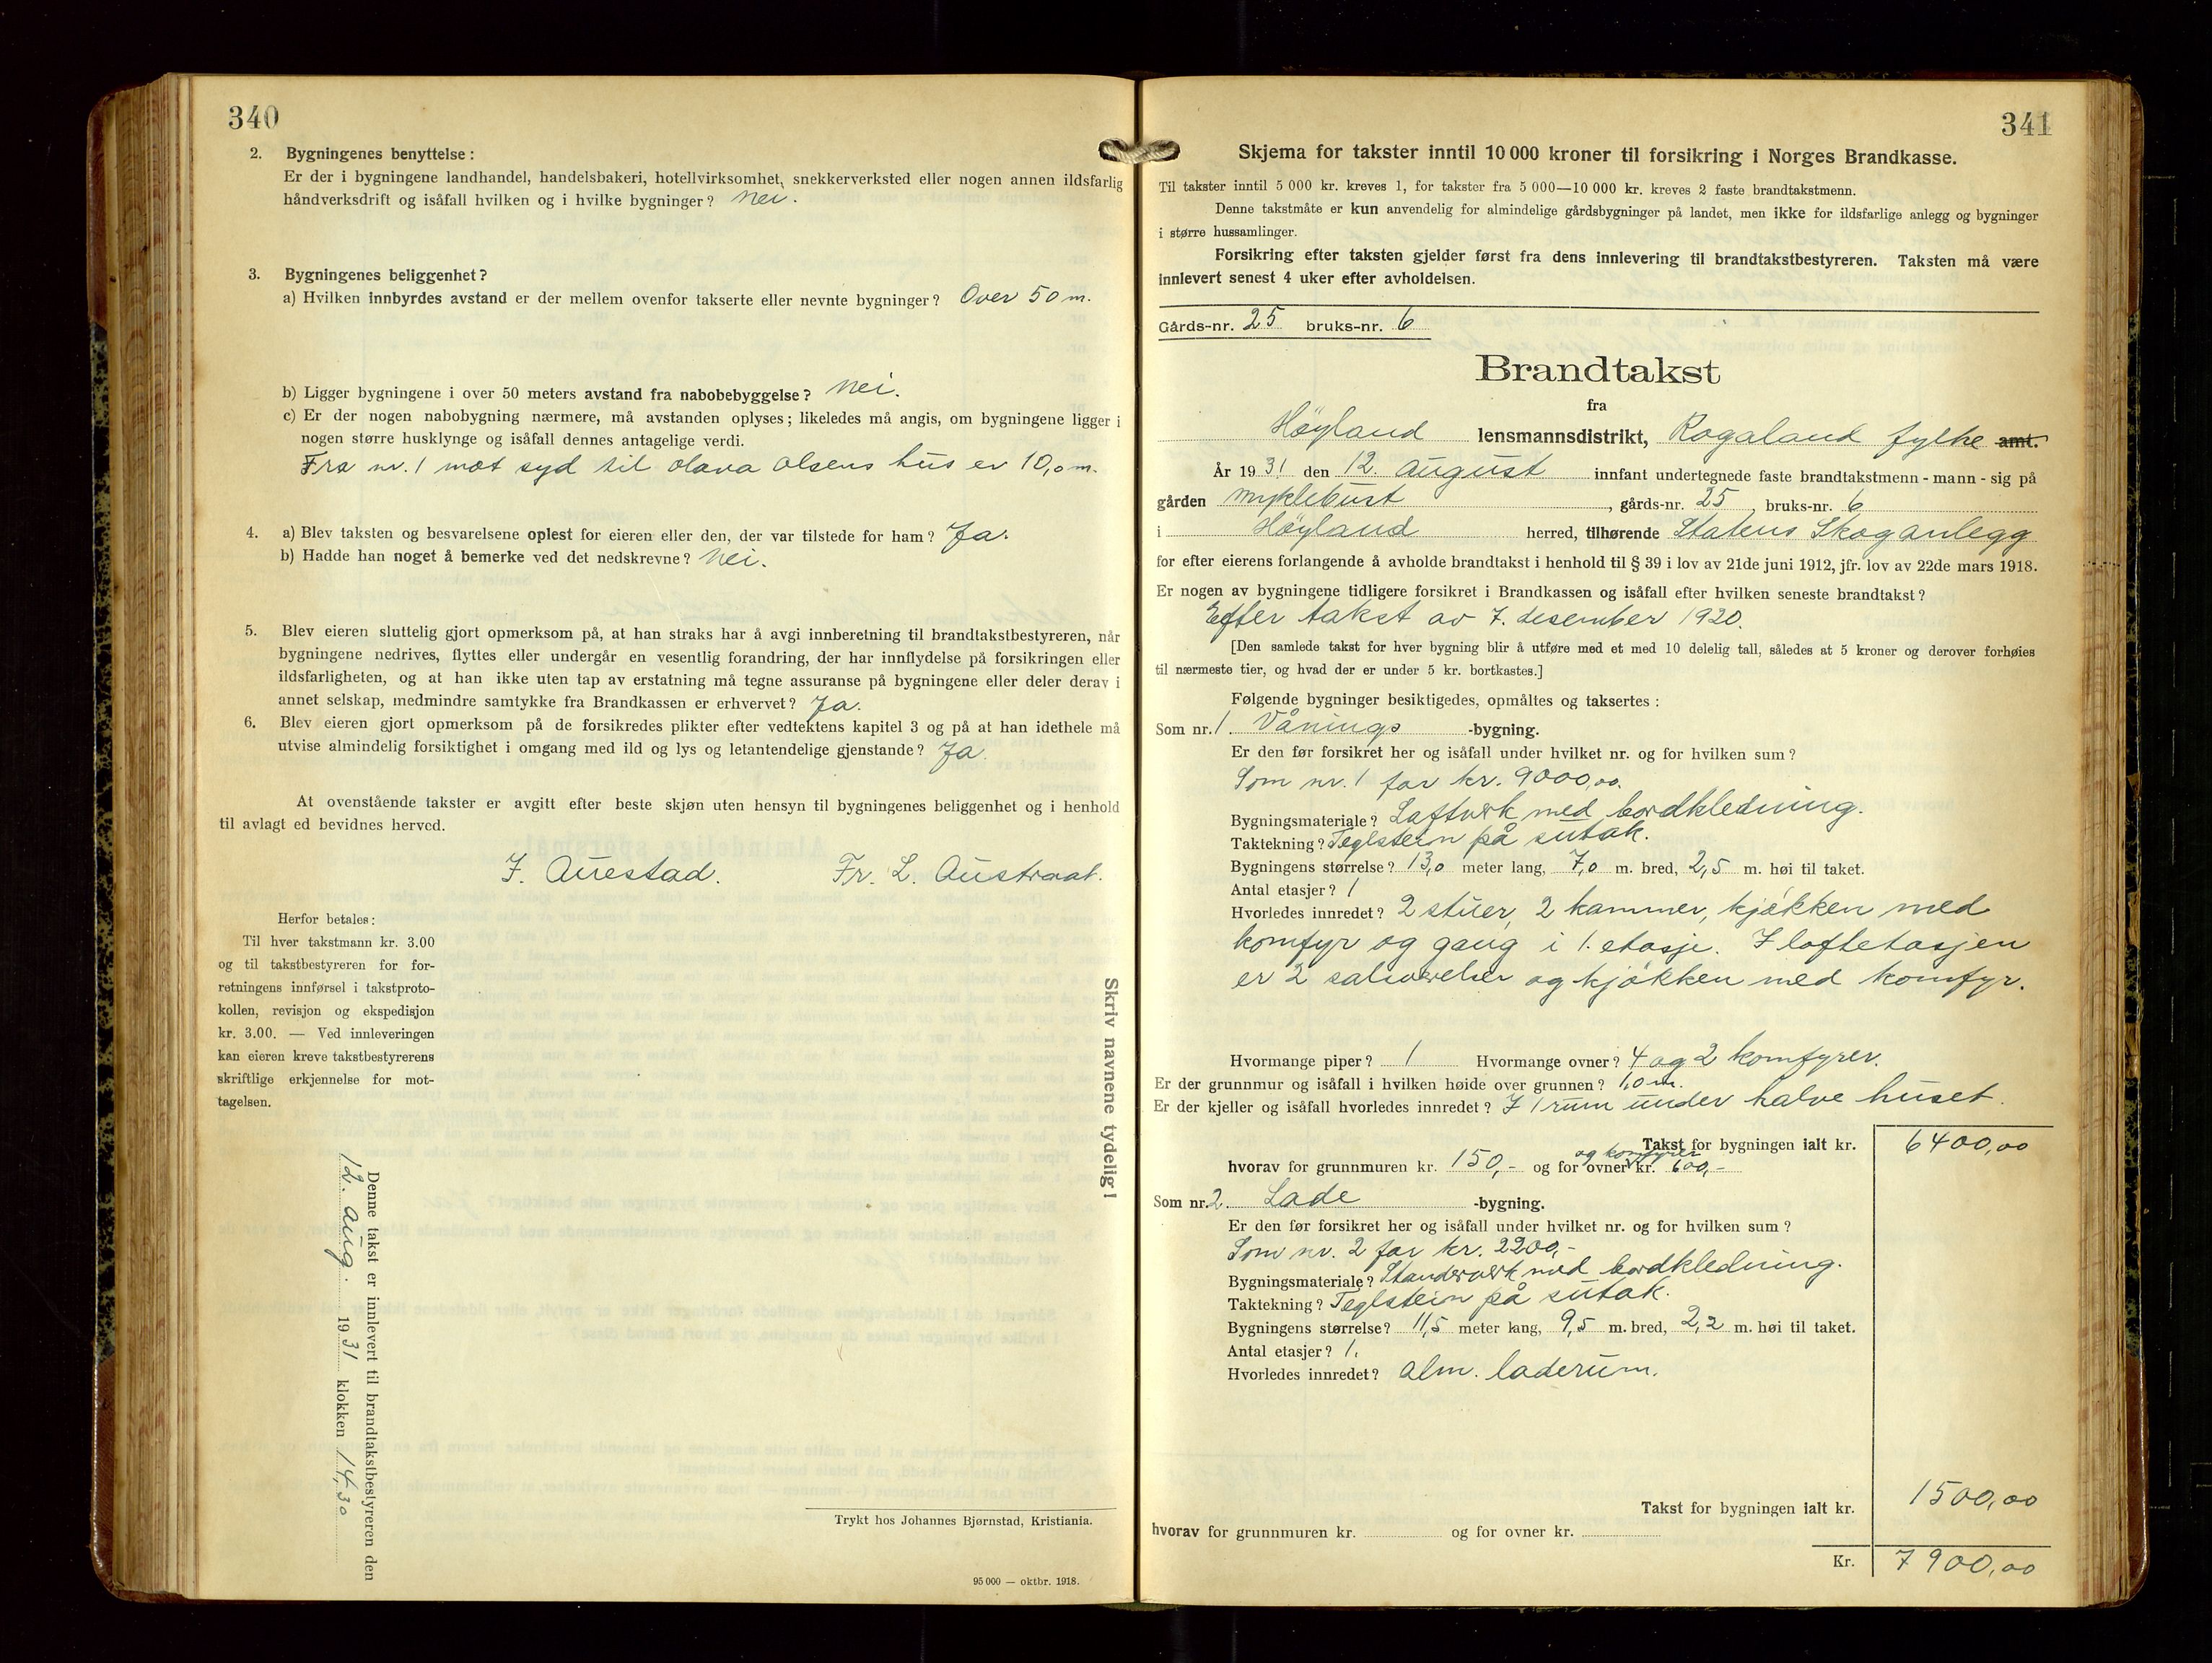 340
2. Bygningenes benyttelse:
Er der i bygningene landhandel, handelsbakeri, hotellvirksomhet, snekkerverksted eller nogen annen ildsfarlig
håndverksdrift og isåfall hvilken og i hvilke bygninger? Nei.
3. Bygningenes beliggenhet?
a) Hvilken innbyrdes avstand er der mellem ovenfor takserte eller nevnte bygninger? Over 50 m.
b) Ligger bygningene i over 50 meters avstand fra nabobebyggelse? Nei.
c) Er der nogen nabobygning nærmere, må avstanden oplyses; likeledes må angis, om bygningene ligger i
nogen større husklynge og isåfall dennes antagelige verdi.
Fra nr. 1 mot syd til Olava Olsens hus er 10,0 m.
4. a) Blev taksten og besvarelsene oplest for eieren eller den, der var tilstede for ham? Ja.
b) Hadde han noget å bemerke ved det nedskrevne? Nei.
5. Blev eieren sluttelig gjort opmerksom på, at han straks har å avgi innberetning til brandtakstbestyreren, når
bygningene nedrives, flyttes eller undergår en vesentlig forandring, der har innflydelse på forsikringen eller
ildsfarligheten, og at han ikke uten tap av erstatning må tegne assuranse på bygningene eller deler derav i
annet selskap, medmindre samtykke fra Brandkassen er erhvervet? Ja.
6. Blev eieren gjort opmerksom på de forsikredes plikter efter vedtektens kapitel 3 og på at han idethele må
utvise almindelig forsiktighet i omgang med ild og lys og letantendelige gjenstande? Ja.
At ovenstående takster er avgitt efter beste skjøn uten hensyn til bygningenes beliggenhet og i henhold
til avlagt ed bevidnes herved.
J. Auestad. Fr. L. Austraat.
Herfor betales:
Til hver takstmann kr. 3.00
og til takstbestyreren for for-
retningens innførsel i takstproto-
kollen, revisjon og ekspedisjon
kr. 3.00. — Ved innleveringen
kan eieren kreve takstbestyrerens
skriftlige erkjennelse for mot-
tagelsen.
Skriv navnene tydelig!
Denne takst er innlevert til brandtakstbestyreren den
12. aug. 1931 klokken 14,30
Trykt hos Johannes Bjørnstad, Kristiania.
95 000 — oktbr. 1918.
341
Skjema for takster inntil 10 000 kroner til forsikring i Norges Brandkasse.
Til takster inntil 5 000 kr. kreves 1, for takster fra 5 000—10 000 kr. kreves 2 faste brandtakstmenn.
Denne takstmåte er kun anvendelig for almindelige gårdsbygninger på landet, men ikke for ildsfarlige anlegg og bygninger
i større hussamlinger.
Forsikring efter taksten gjelder først fra dens innlevering til brandtakstbestyreren. Taksten må være
innlevert senest 4 uker efter avholdelsen.
Gårds-nr. 25 bruks-nr. 6
Brandtakst
fra
Høyland lensmannsdistrikt, Rogaland fylke amt.
År 1931 den 12. august innfant undertegnede faste brandtakstmenn - mann - sig på
gården Myklebust, gårds-nr. 25, bruks-nr. 6
i Høyland herred, tilhørende Statens Skoganlegg
for efter eierens forlangende å avholde brandtakst i henhold til § 39 i lov av 21de juni 1912, jfr. lov av 22de mars 1918.
Er nogen av bygningene tidligere forsikret i Brandkassen og isåfall efter hvilken seneste brandtakst?
Efter takst av 7. desember 1920.
[Den samlede takst for hver bygning blir å utføre med et med 10 delelig tall, således at 5 kroner og derover forhøies
til nærmeste tier, og hvad der er under 5 kr. bortkastes.]
Følgende bygninger besiktigedes, opmåltes og taksertes:
Som nr. 1 Vånings -bygning.
Er den før forsikret her og isåfall under hvilket nr. og for hvilken sum?
Som nr. 1 for kr. 9000,00.
Bygningsmateriale? Laftverk med bordkledning.
Taktekning? Teglstein på sutak.
Bygningens størrelse? 13,0 meter lang, 7,0 m. bred, 2,5 m. høi til taket.
Antal etasjer? 1
Hvorledes innredet? 2 stuer, 2 kammer, kjøkken med
komfyr og gang i 1. etasje. I loftetasjen
er 2 salsværelser og kjøkken med komfyr.
Hvormange piper? 1 Hvormange ovner? 4 og 2 komfyrer.
Er der grunnmur og isåfall i hvilken høide over grunnen? 1,0 m.
Er der kjeller og isåfall hvorledes innredet? I 1 rum under halve huset.
Takst for bygningen ialt kr. 6400,00
og komfyrer
hvorav for grunnmuren kr. 150,- og for ovner kr. 600,-
Som nr. 2 Lade -bygning.
Er den før forsikret her og isåfall under hvilket nr. og for hvilken sum?
Som nr. 2 for kr. 2200,-
Bygningsmateriale? Standerverk med bordkledning.
Taktekning? Teglstein på sutak.
Bygningens størrelse? 11,5 meter lang, 9,5 m. bred, 2,2 m. høi til taket.
Antal etasjer? 1.
Hvorledes innredet? Alm. laderum.
Takst for bygningen ialt kr. 1500,00
hvorav for grunnmuren kr. og for ovner kr.
Kr. 7900,00